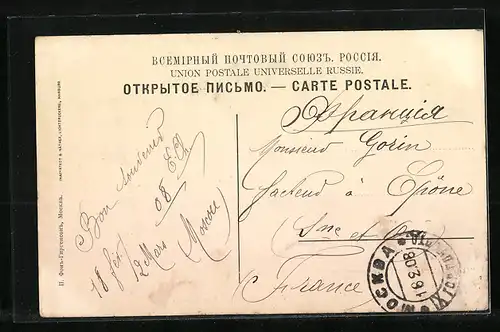 ВСЕМІРНЫЙ ПОЧТОВЫЙ СОЮЗЪ. РОССІЯ.
UNION POSTALE UNIVERSELLE RUSSIE.
ОТКРЫТОЕ ПИСЬМО. — CARTE POSTALE.
Франція
Monsieur Gorin
facteur à Epône
Sne et
France
Bon souvenir
08
12 Mars
(Moscou)
18
П. Фонъ-Гиргенсонъ, Москва.
МОСКВА
16.3.08